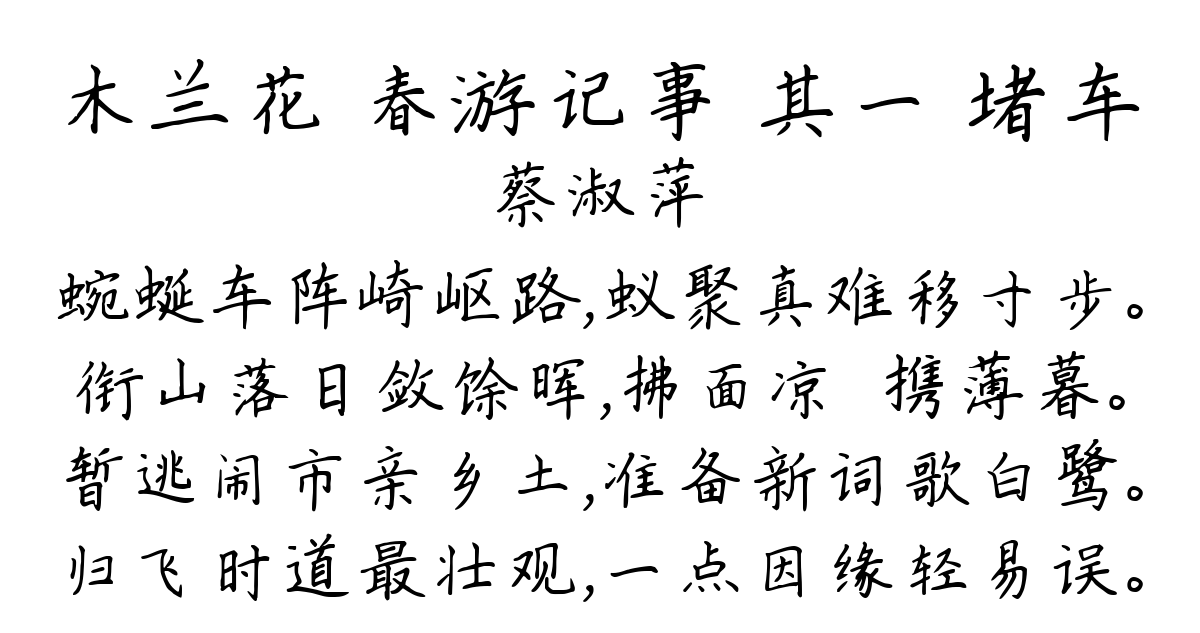 木兰花 春游记事 其一 堵车
蔡淑萍
蜿蜒车阵崎岖路,蚁聚真难移寸步。
衔山落日敛馀晖,拂面凉 携薄暮。
暂逃闹市亲乡土,准备新词歌白鹭。
归飞时道最壮观,一点因缘轻易误。